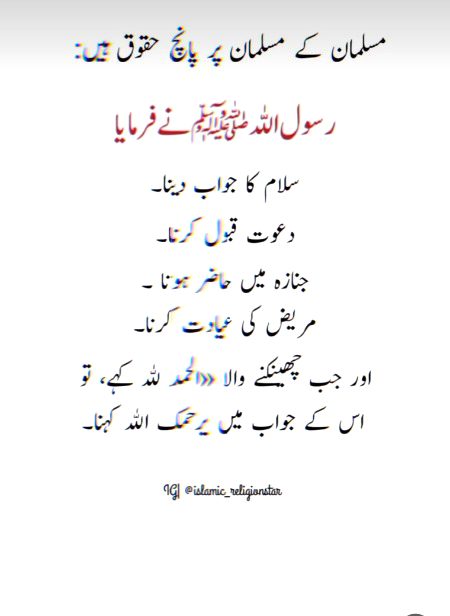 مسلمان کے مسلمان پر پانچ حقوق ہیں:
رسول اللہ ﷺ نے فرمایا
سلام کا جواب دینا۔
دعوت قبول کرنا۔
جنازہ میں حاضر ہونا ۔
مریض کی عیادت کرنا۔
اور جب چھینکنے والا «الحمد للہ کہے، تو
اس کے جواب میں یرحمک اللہ کہنا۔
IG| @islamic_religionstar